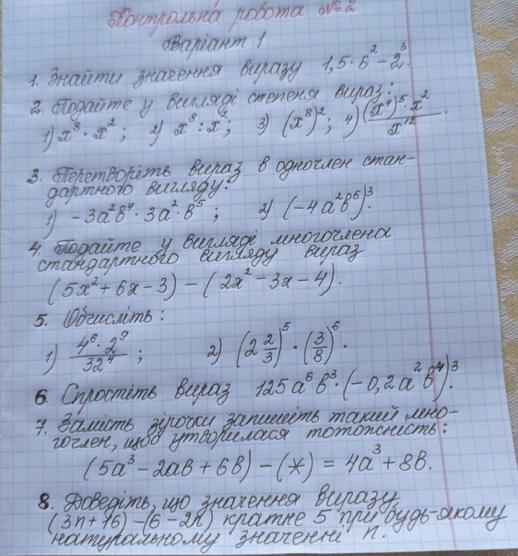 Контрольна робота №2
Варіант 1
1. Знайти значення виразу 1,5 · 6² − 2³.
2. Подайте у вигляді степеня вираз:
1) x⁸ · x²; 2) x⁸ : x²; 3) (x⁸)²; 4) (x⁴)⁵ · x² / x¹².
3. Перетворіть вираз в одночлен стан-
дартного вигляду:
1) −3a²b⁴ · 3a² · b⁵; 2) (−4a²b⁶)³.
4. Подайте у вигляді многочлена
стандартного вигляду вираз
(5x² + 6x − 3) − (2x² − 3x − 4).
5. Обчисліть:
1) 4⁶ · 2⁹ / 32⁴; 2) (2 2/3)⁵ · (3/8)⁶.
6. Спростіть вираз 125a⁶b³ · (−0,2a²b⁴)³.
7. Замість зірочки запишіть такий мно-
гочлен, щоб утворилася тотожність:
(5a³ − 2ab + 6b) − (*) = 4a³ + 8b.
8. Доведіть, що значення виразу
(3n + 16) − (6 − 2n) кратне 5 при будь-якому
натуральному значенні n.